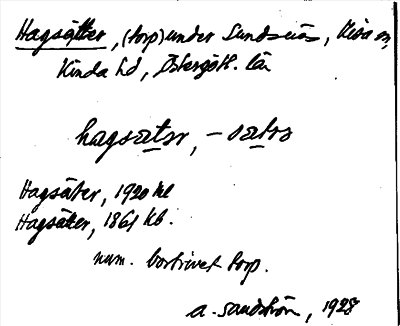 Hagsätter, (torp) under Sundsnäs, Kisa sn,
Kinda hd, Östergötl. län
hagsætər, -sætrə
Hagsäter, 1920 kl
Hagsätter, 1861 kb.
num. bortrivet torp.
A. Sandström, 1928